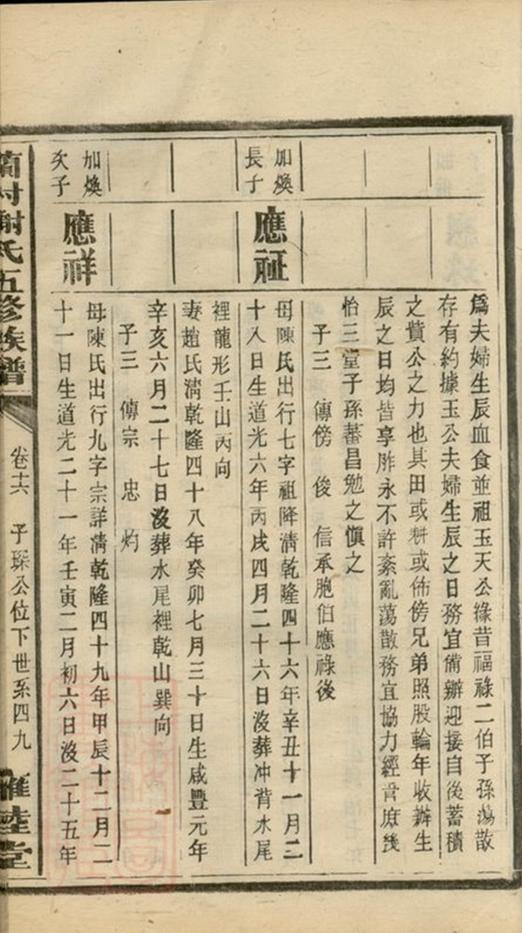 為夫婦生辰血食並祖玉天公祿昔福祿二伯子孫蕩散
存有約據玉公夫婦生辰之日務宜備辦迎接自後蓄積
之貲公之力也其田或耕或佈傍兄弟照股輪年收辦生
辰之日均皆享胙永不許紊亂蕩散務宜協力經營庶幾
怡三堂子孫蕃昌勉之慎之
子三 傳傍 俊 信承胞伯應祿後
加煥長子
應祉
母陳氏出行七字祖降清乾隆四十六年辛丑十一月二
十八日生道光六年丙戌四月二十六日沒葬冲背水尾
裡龍形壬山丙向
妻趙氏清乾隆四十八年癸卯七月三十日生咸豐元年
辛亥六月二十七日沒葬水尾裡乾山巽向
子三 傳宗 忠 灼
加煥次子
應祥
母陳氏出行九字宗詳清乾隆四十九年甲辰十二月二
十一日生道光二十一年壬寅二月初六日沒二十五年
謝氏五修族譜
卷十六 子琛公位下世系四九
雍睦堂